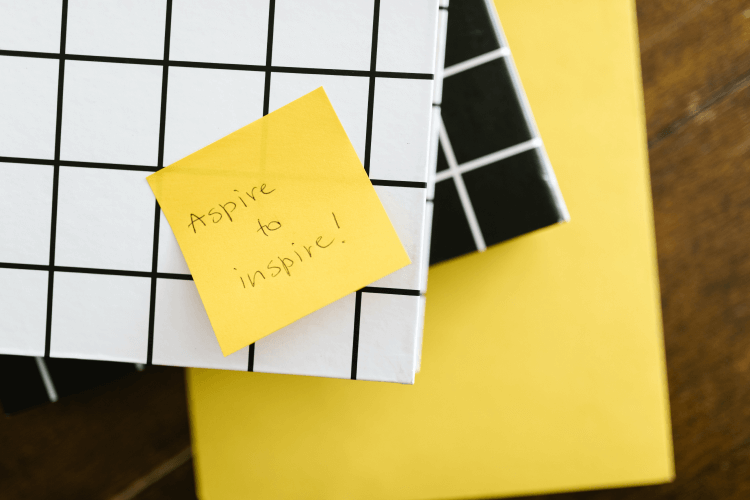 Aspire
to
inspire!